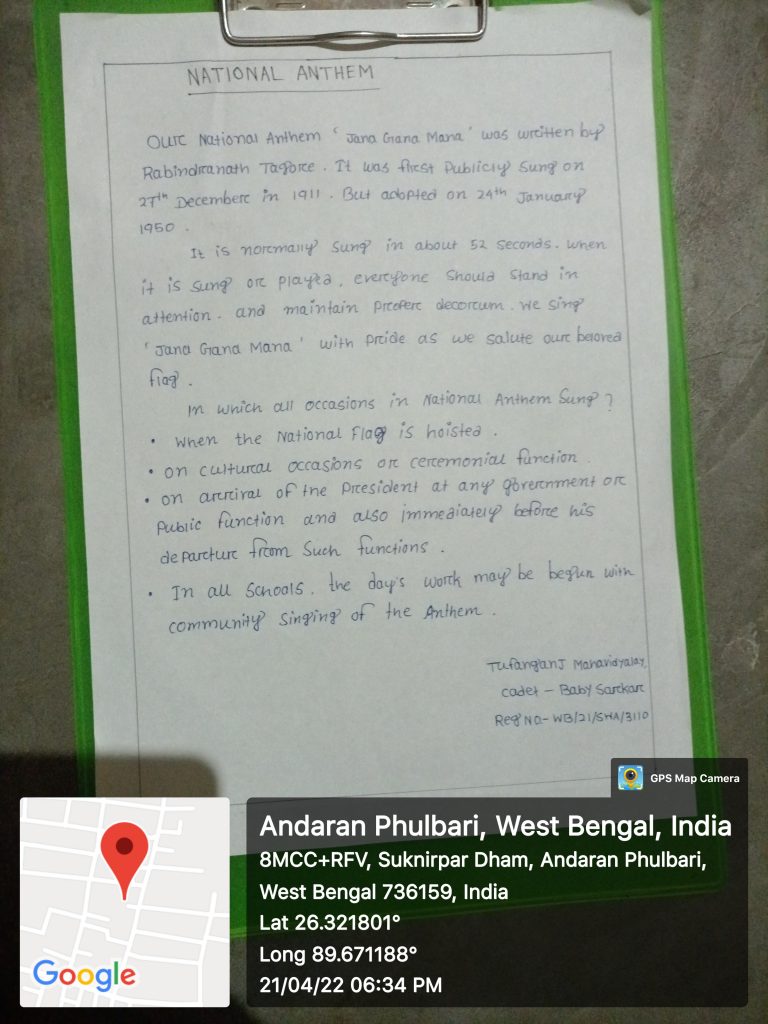 NATIONAL ANTHEM
Our National Anthem 'Jana Gana Mana' was written by
Rabindranath Tagore. It was first Publicly Sung on
27th December in 1911. But adopted on 24th January
1950.
It is normally sung in about 52 seconds. When
it is sung or played, everyone should stand in
attention. and maintain proper decorum. We sing
'Jana Gana Mana' with pride as we salute our beloved
flag.
In which all occasions in National Anthem Sung?
• When the National Flag is hoisted.
• on cultural occasions or ceremonial function.
• on arrival of the President at any government or
Public function and also immediately before his
departure from Such functions.
• In all Schools. the day's work may be begun with
community singing of the Anthem.
Tufanganj Mahavidyalay,
cadet - Baby Sarkar
Reg No.- WB/21/SHA/3110
GPS Map Camera
Andaran Phulbari, West Bengal, India
8MCC+RFV, Suknirpar Dham, Andaran Phulbari,
West Bengal 736159, India
Lat 26.321801°
Long 89.671188°
21/04/22 06:34 PM
Google